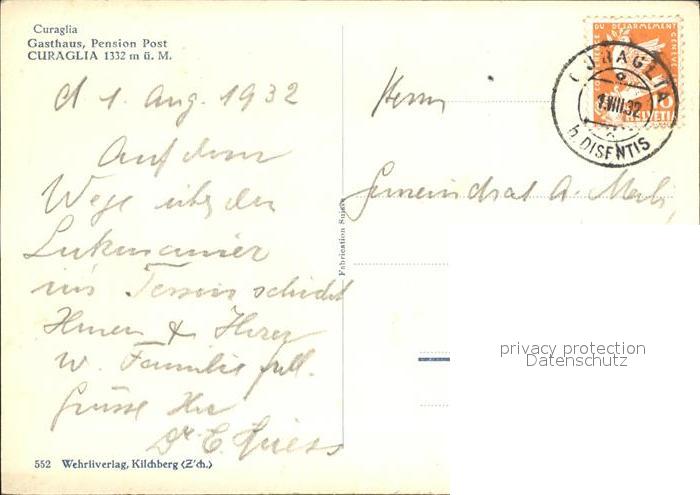 Curaglia
Gasthaus, Pension Post
CURAGLIA 1332 m ü. M.
d 1. Aug. 1932
Auf dem
Wege über den
Lukmanier
ins Tessin schickt
Ihnen & Ihrer
w. Familie frdl.
Grüsse Ihr
Dr E.
552 Wehrliverlag, Kilchberg (Z'ch.)
Fabrication Suisse
Herrn
Gemeindrat A.
DU DÉSARMEMENT
GENÈVE
HELVETIA
CURAGLIA
1.VIII.32
b. DISENTIS
privacy protection
Datenschutz